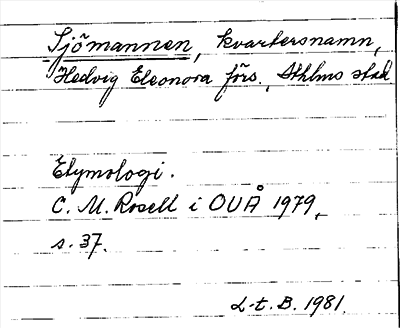 Sjömannen, kvartersnamn,
Hedvig Eleonora förs., Sthlms stad
Etymologi.
C. M. Rosell i OUÅ 1979,
s. 37.
L-t. B. 1981.